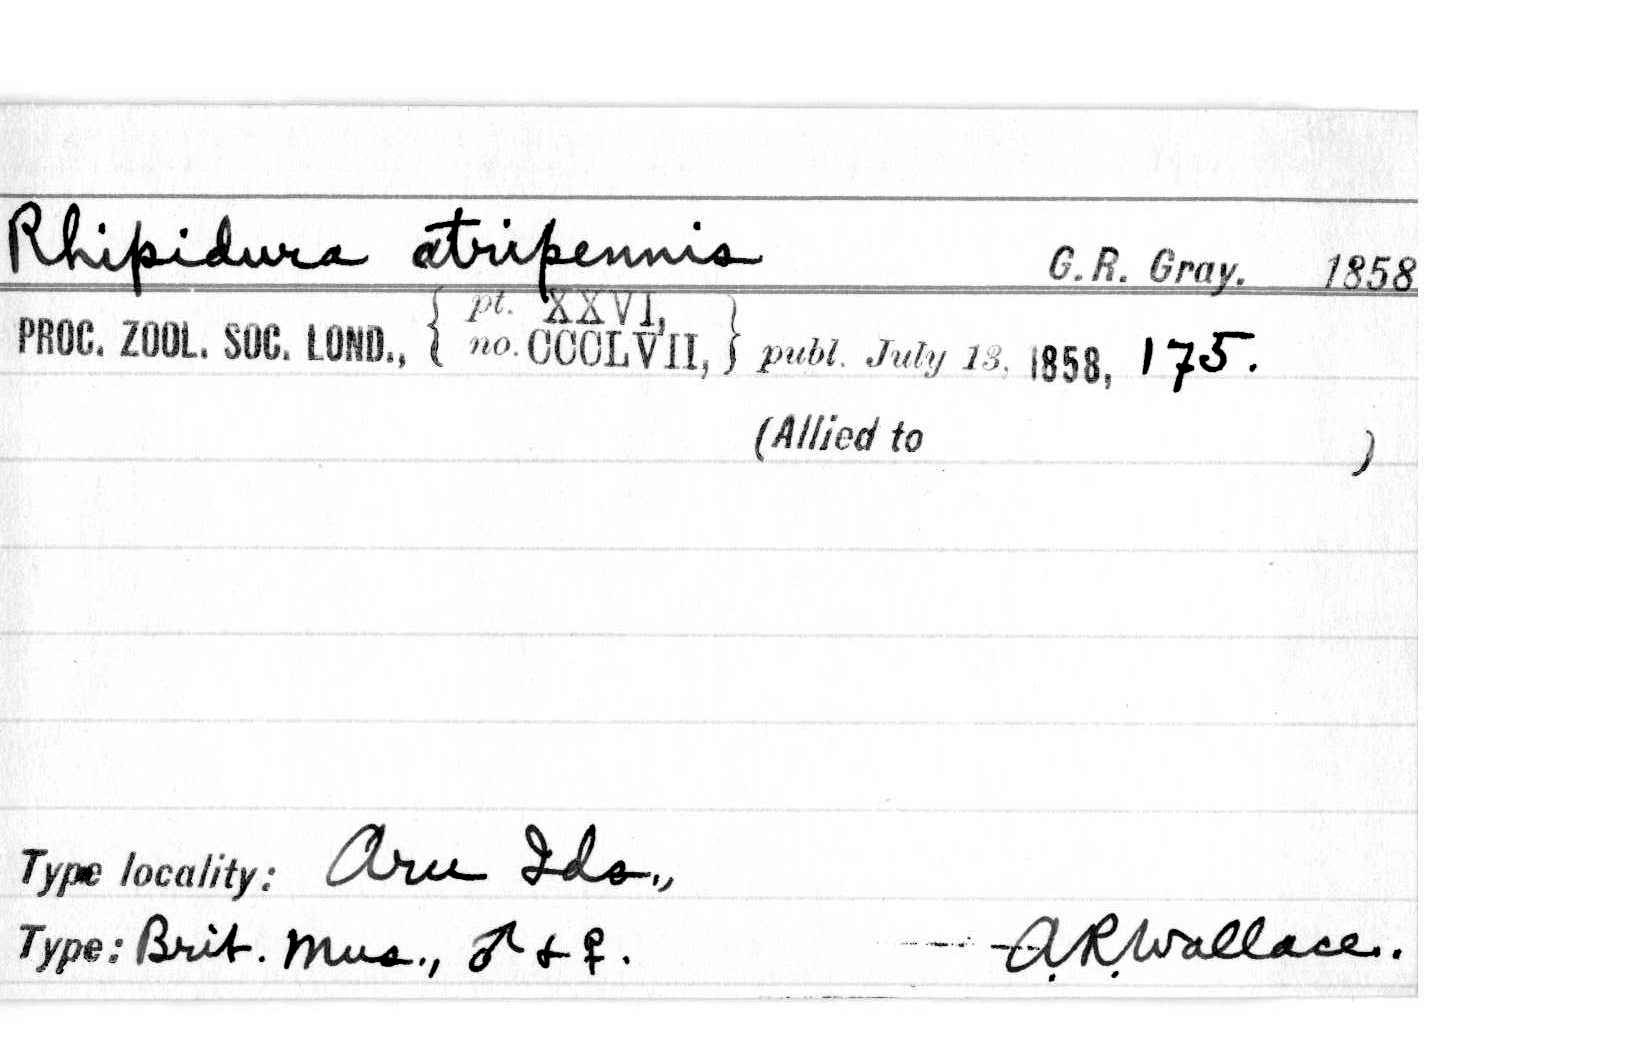 Rhipidura atripennis G. R. Gray. 1858
PROC. ZOOL. SOC. LOND., { pt. XXVI, no. CCCLVII, } publ. July 13, 1858, 175.
(Allied to )
Type locality: Aru Ids.,
Type: Brit. Mus., ♂ + ♀. A.R. Wallace.